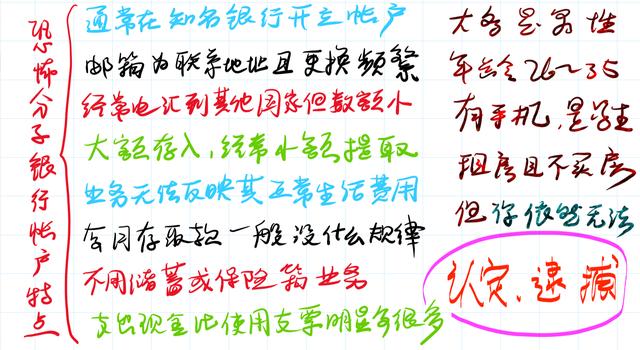 恐怖分子银行帐户特点
通常在知名银行开立帐户
邮箱为联系地址且更换频繁
经常电汇到其他国家但数额小
大额存入,经常小额提取
业务无法反映其正常生活费用
每月存取款一般没什么规律
不用储蓄或保险箱业务
支出现金比使用支票明显多很多
大多是男性
年龄26~35
有手机,是学生
租房且不买房
但你依然无法
认定、逮捕